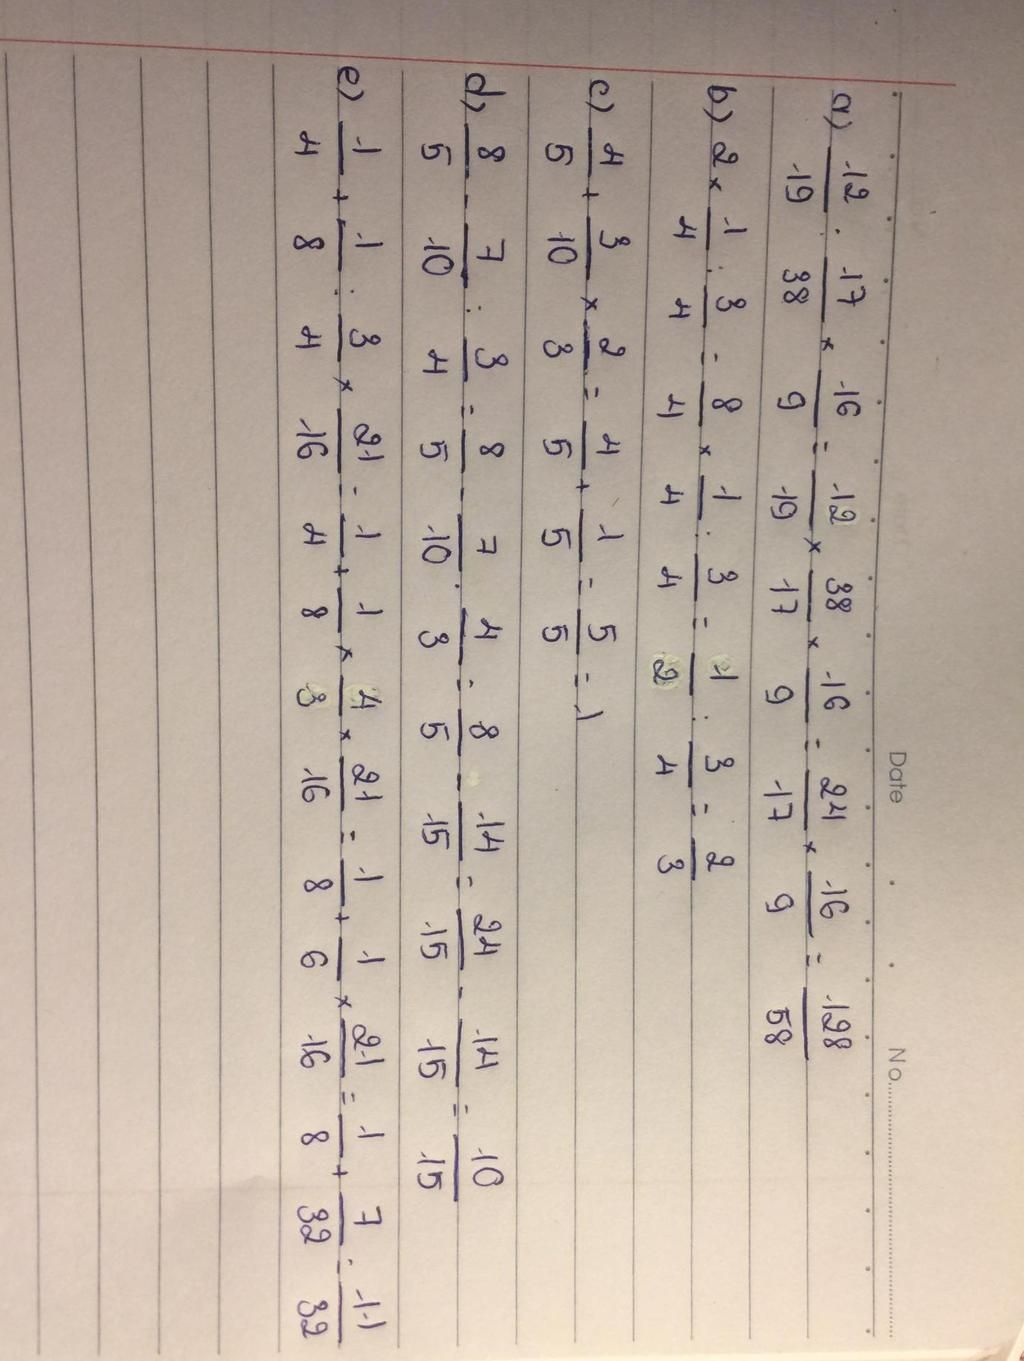 Date No.
a) 12/19 : 17/38 × 16/9 = 12/19 × 38/17 × 16/9 = 24/17 × 16/9 = 128/58
b) 2 × 1/4 : 3/4 = 8/4 × 1/4 : 3/4 = 1/2 : 3/4 = 2/3
c) 4/5 + 3/10 × 2/3 = 4/5 + 1/5 = 5/5 = 1
d) 8/5 - 7/10 : 3/4 = 8/5 - 7/10 . 4/3 = 8/5 - 14/15 = 24/15 - 14/15 = 10/15
e) 1/4 + 1/8 : 3/4 × 21/16 = 1/4 + 1/8 × 4/3 × 21/16 = 1/8 + 1/6 × 21/16 = 1/8 + 7/32 = 11/32